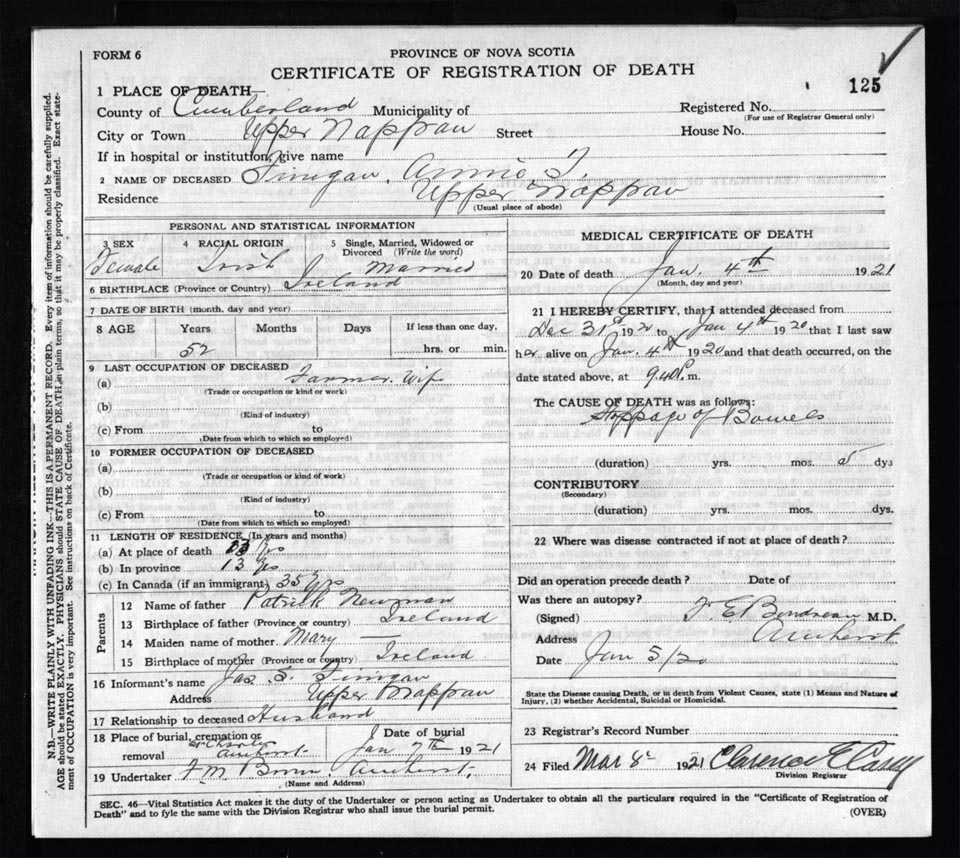 FORM 6
PROVINCE OF NOVA SCOTIA
CERTIFICATE OF REGISTRATION OF DEATH
125
1 PLACE OF DEATH—
County of Cumberland Municipality of
Registered No.
(For use of Registrar General only)
City or Town Upper Nappan Street
House No.
If in hospital or institution, give name
2 NAME OF DECEASED Finigan, Annie T.
Residence Upper Nappan
(Usual place of abode)
PERSONAL AND STATISTICAL INFORMATION
3 SEX 4 RACIAL ORIGIN 5 Single, Married, Widowed or Divorced (Write the word)
Female Irish Married
6 BIRTHPLACE (Province or Country) Ireland
7 DATE OF BIRTH (month, day and year)
8 AGE Years Months Days If less than one day,
52 hrs. or min.
9 LAST OCCUPATION OF DECEASED
(a) Farmer Wife
(Trade or occupation or kind or work)
(b)
(Kind of industry)
(c) From to
(Date from which to which so employed)
10 FORMER OCCUPATION OF DECEASED
(a)
(Trade or occupation or kind or work)
(b)
(Kind of industry)
(c) From to
(Date from which to which so employed)
11 LENGTH OF RESIDENCE (In years and months)
(a) At place of death 13 Yrs
(b) In province 13 Yrs
(c) In Canada (if an immigrant) 35 Yrs
Parents
12 Name of father Patrick Newman
13 Birthplace of father (Province or country) Ireland
14 Maiden name of mother Mary —
15 Birthplace of mother (Province or country) Ireland
16 Informant's name Jas. S. Finigan
Address Upper Nappan
17 Relationship to deceased Husband
18 Place of burial, cremation or removal St Charles Amherst
Date of burial Jan 7th 1921
19 Undertaker Amherst.
(Name and Address)
MEDICAL CERTIFICATE OF DEATH
20 Date of death Jan. 4th 1921
(Month, day and year)
21 I HEREBY CERTIFY, that I attended deceased from
Dec 31st 1920 to Jan 4th 1920 that I last saw
her alive on Jan. 4th 1920 and that death occurred, on the
date stated above, at 9.40 P. m.
The CAUSE OF DEATH was as follows:
Stoppage of Bowels
(duration) yrs. mos. dys
CONTRIBUTORY
(Secondary)
(duration) yrs. mos. dys.
22 Where was disease contracted if not at place of death?
Did an operation precede death? Date of
Was there an autopsy?
(Signed) M.D.
Address Amherst
Date Jan 5/20
State the Disease causing Death, or in death from Violent Causes, state (1) Means and Nature of
Injury, (2) whether Accidental, Suicidal or Homicidal.
23 Registrar's Record Number
24 Filed Mar 8th 1921 Clarence E Casey
Division Registrar
SEC. 46—Vital Statistics Act makes it the duty of the Undertaker or person acting as Undertaker to obtain all the particulars required in the "Certificate of Registration of
Death" and to fyle the same with the Division Registrar who shall issue the burial permit.
(OVER)
N.B.—WRITE PLAINLY WITH UNFADING INK—THIS IS A PERMANENT RECORD. Every item of information should be carefully supplied.
AGE should be stated EXACTLY. PHYSICIANS should STATE CAUSE OF DEATH in plain terms, so that it may be properly classified. Exact state-
ment of OCCUPATION is very important. See instructions on back of Certificate.